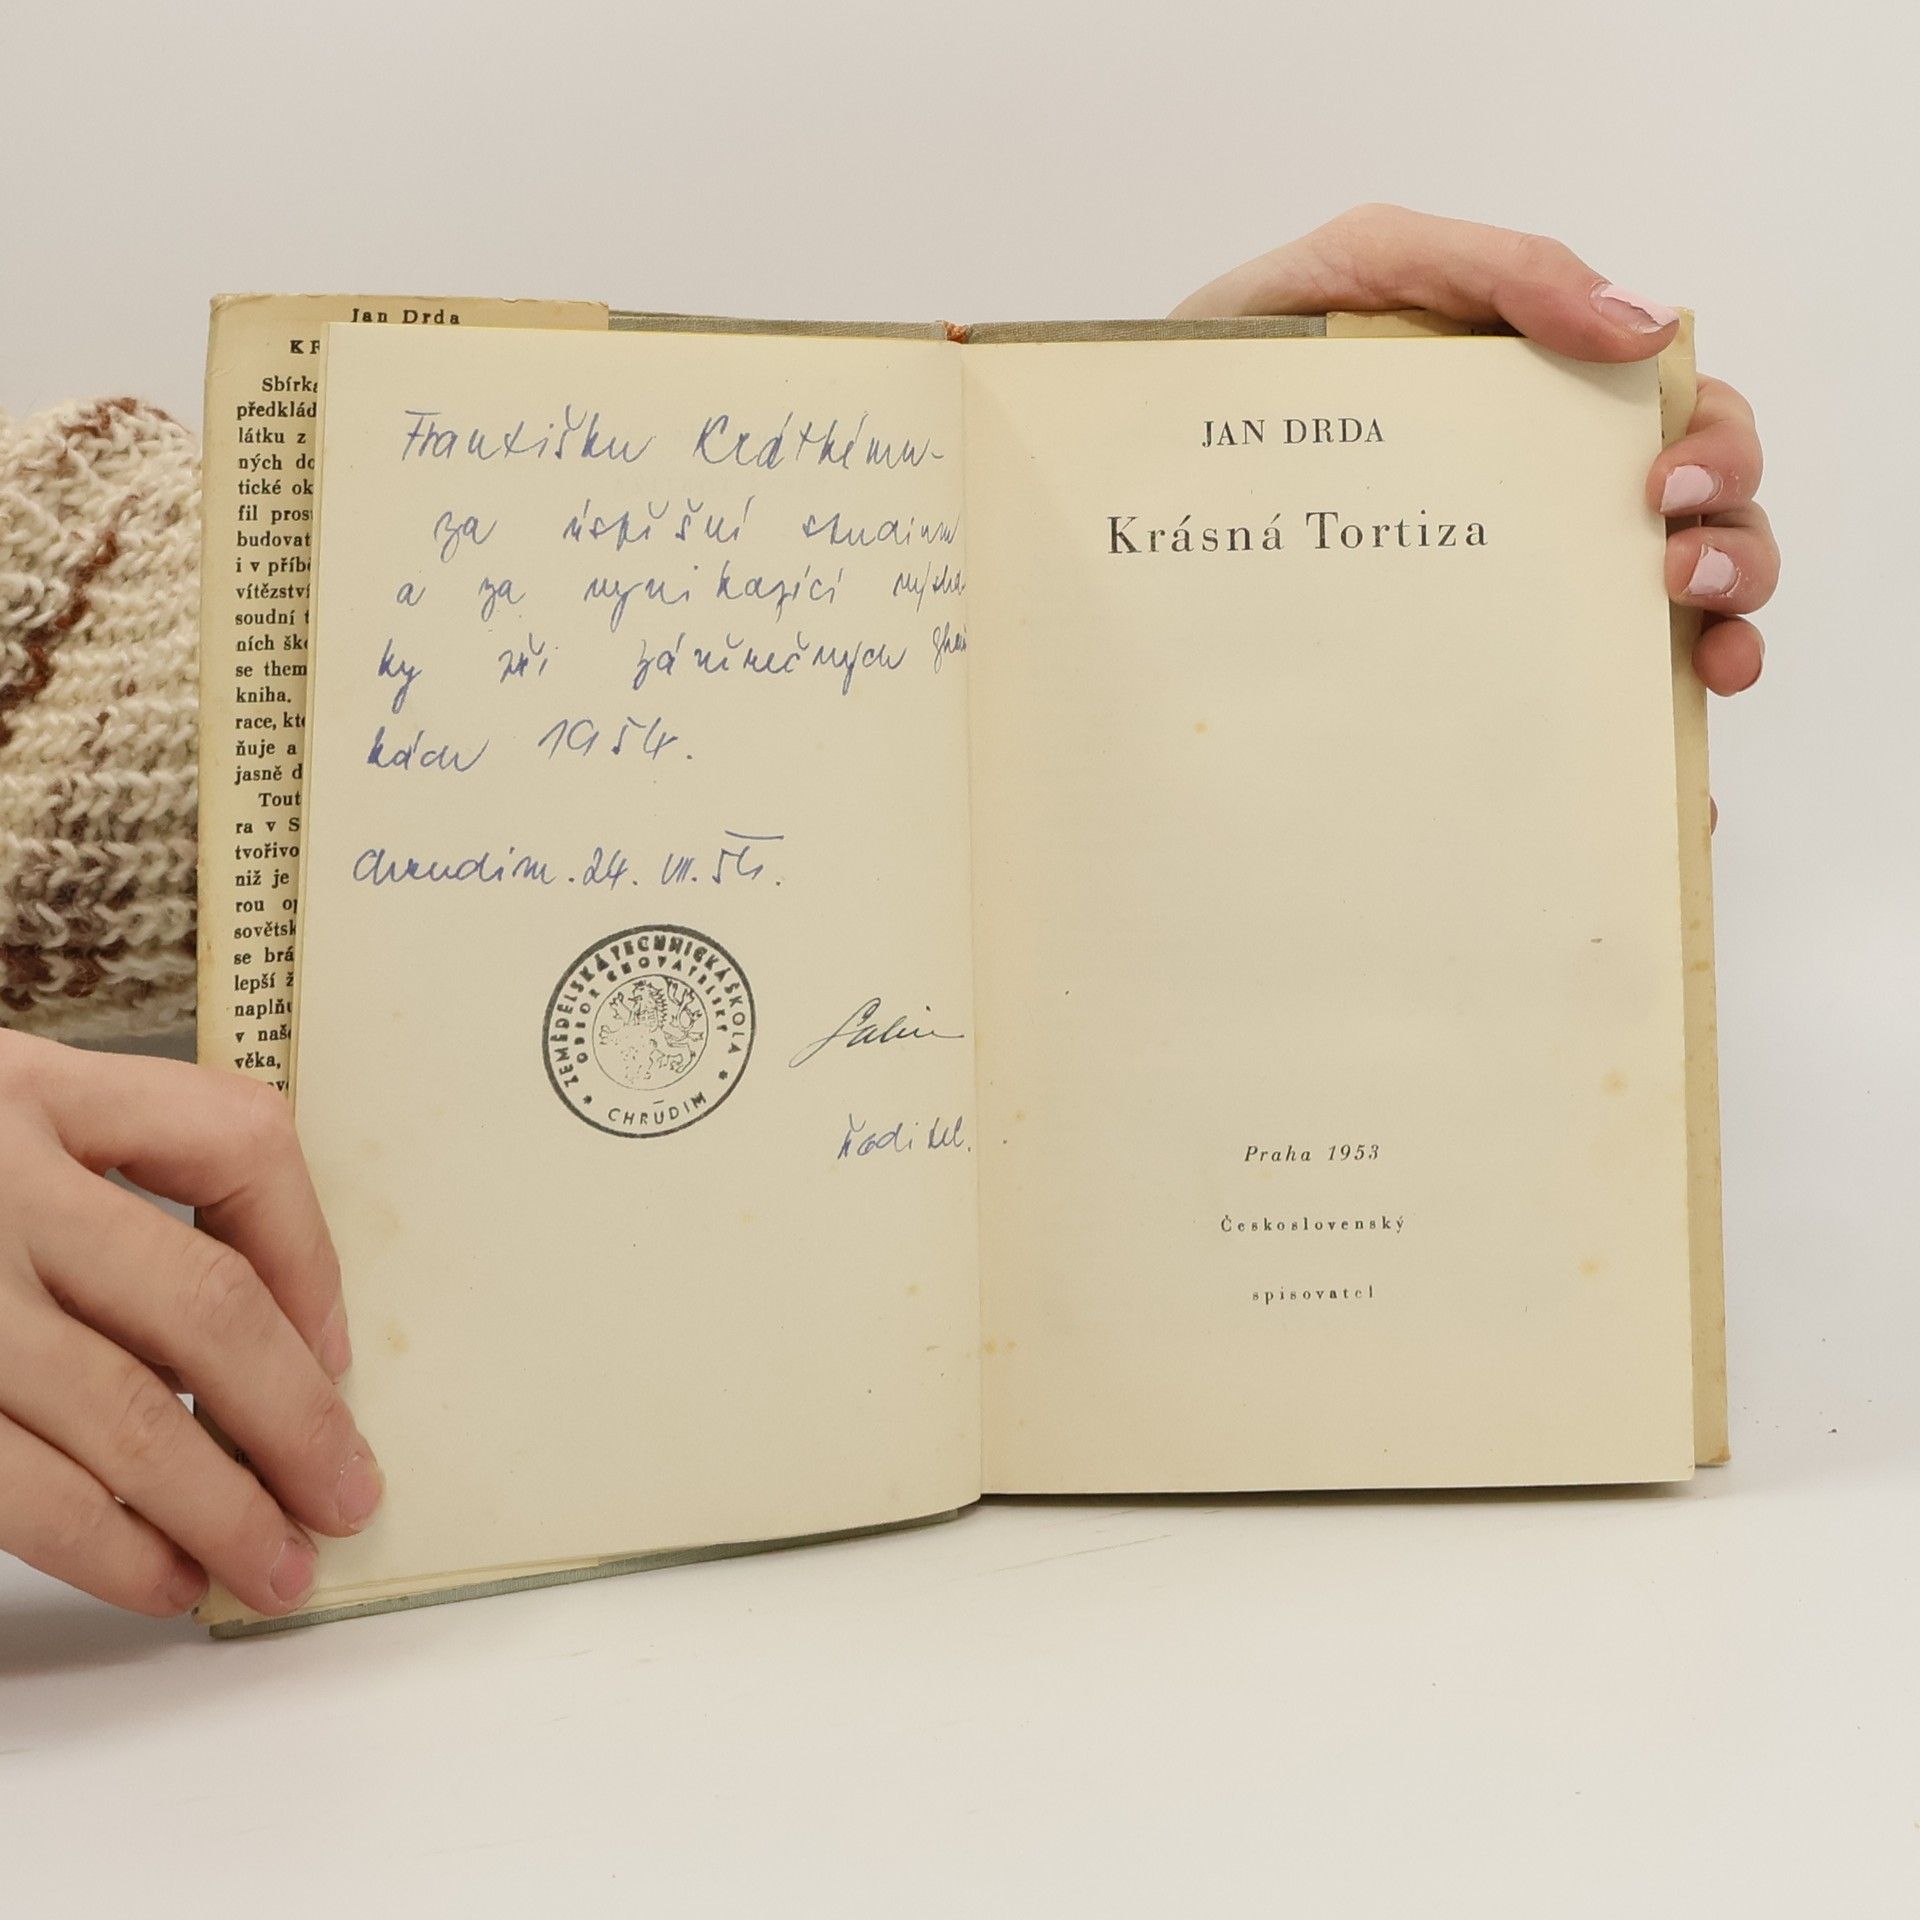 Jan Drda
Sbírk
předklád
látku z
ných do
tické ok
fil pros
budovat
i v příbě
vítězství
soudní t
ních ško
se them
kniha.
race, kte
ňuje a
jasně d
Tout
ra v S
tvořivo
niž je
rou op
sovětsk
se brá
lepší ž
naplňu
v naše
věka,
Františku Krátkému
za úspěšné studium
a za vynikající výsled-
ky při závěrečných zkouš
kách 1954.
Chrudim. 24. VII. 54.
ZEMĚDĚLSKÁ TECHNICKÁ ŠKOLA
ODBOR CHOVATELSKÝ
* CHRUDIM *
ředitel.
JAN DRDA
Krásná Tortiza
Praha 1953
Československý
spisovatel